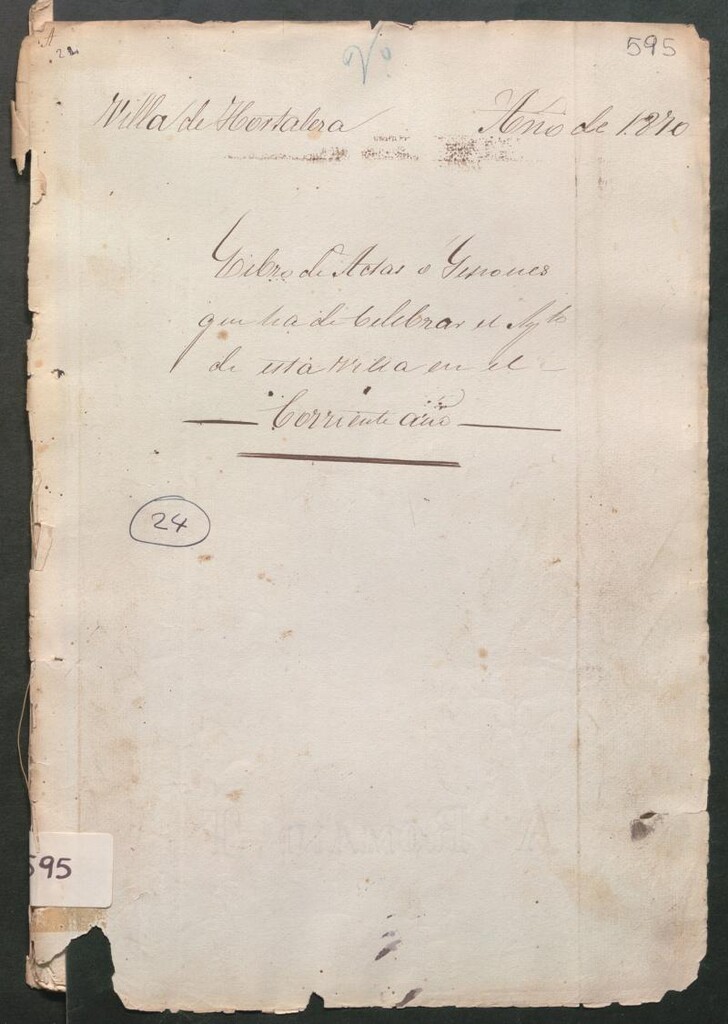 595
Vº
Villa de Hortaleza Año de 1870
Libro de Actas o Sesiones
que ha de Celebrar el Aytº
de esta Villa en el
Corriente año
24
595